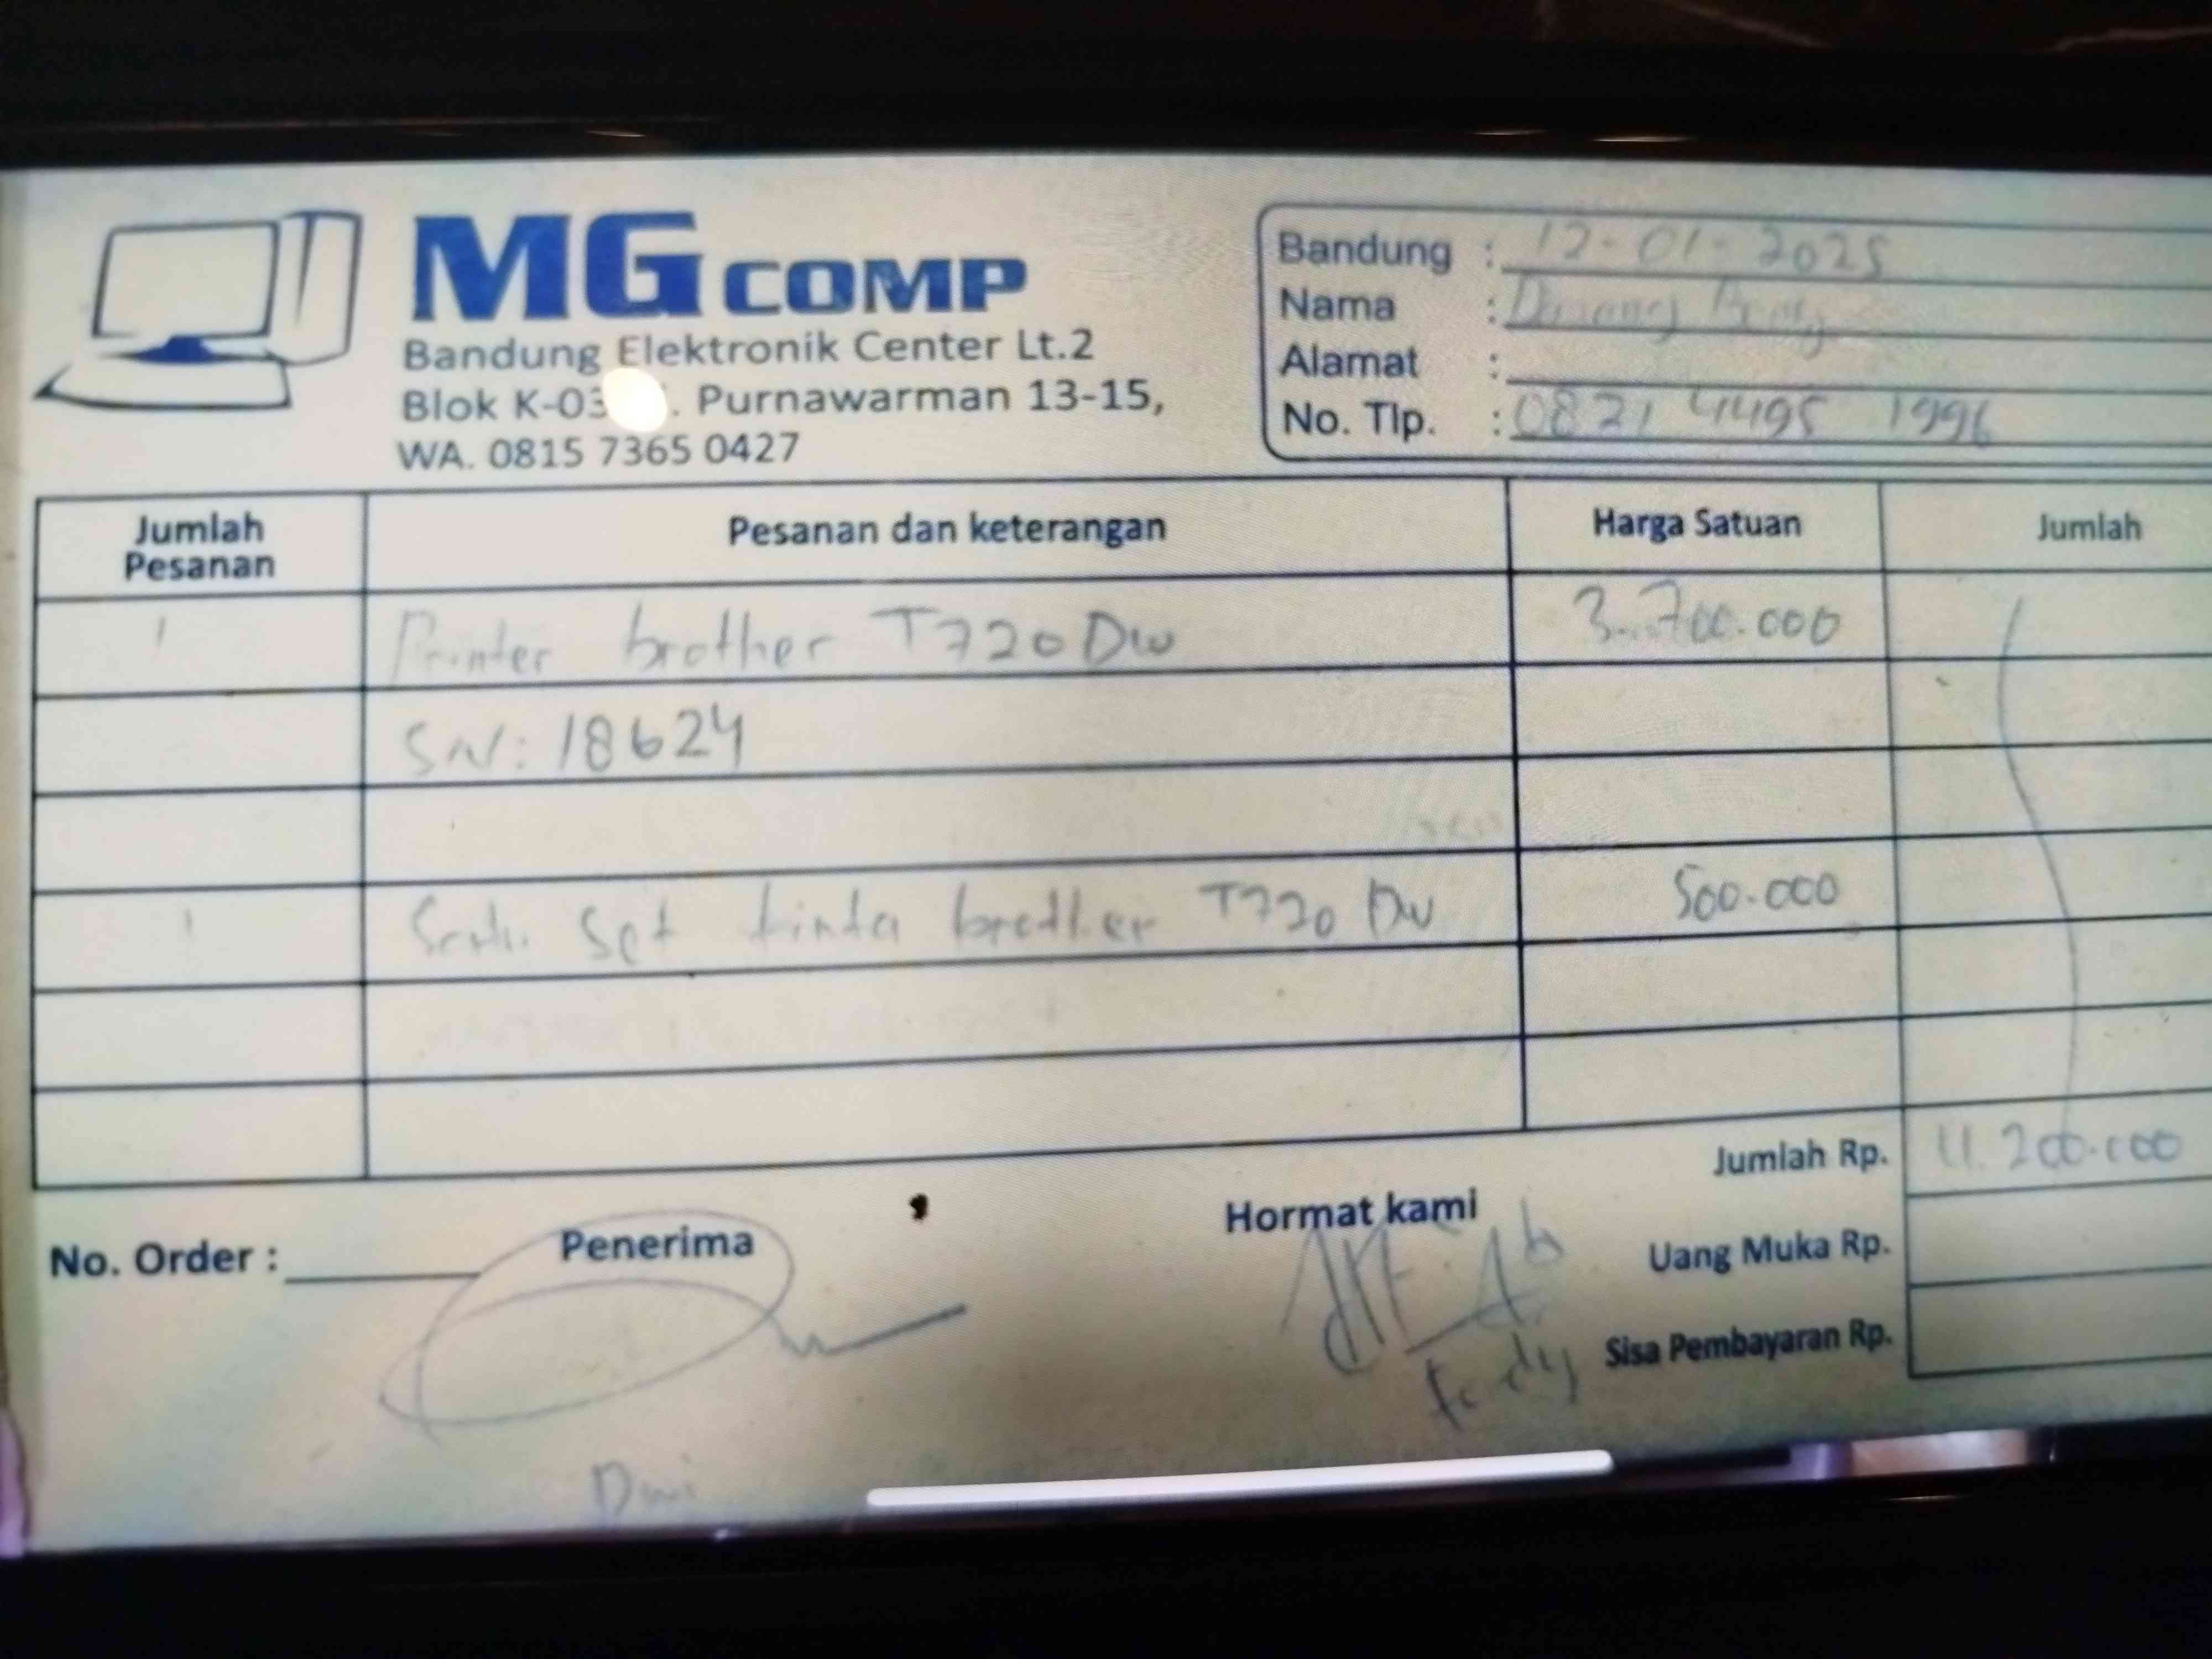 MG COMP
Bandung Elektronik Center Lt.2
Blok K-03 . Purnawarman 13-15,
WA. 0815 7365 0427
Bandung : 12-01-2025
Nama :
Alamat :
No. Tlp. : 0821 4495 1996
Jumlah Pesanan Pesanan dan keterangan Harga Satuan Jumlah
1 Printer brother T720DW 3.700.000
SN: 18624
1 Set tinta brother T720 DW 500.000
Jumlah Rp. 4.200.000
No. Order : Penerima Hormat kami
Uang Muka Rp.
Sisa Pembayaran Rp.
Dwi